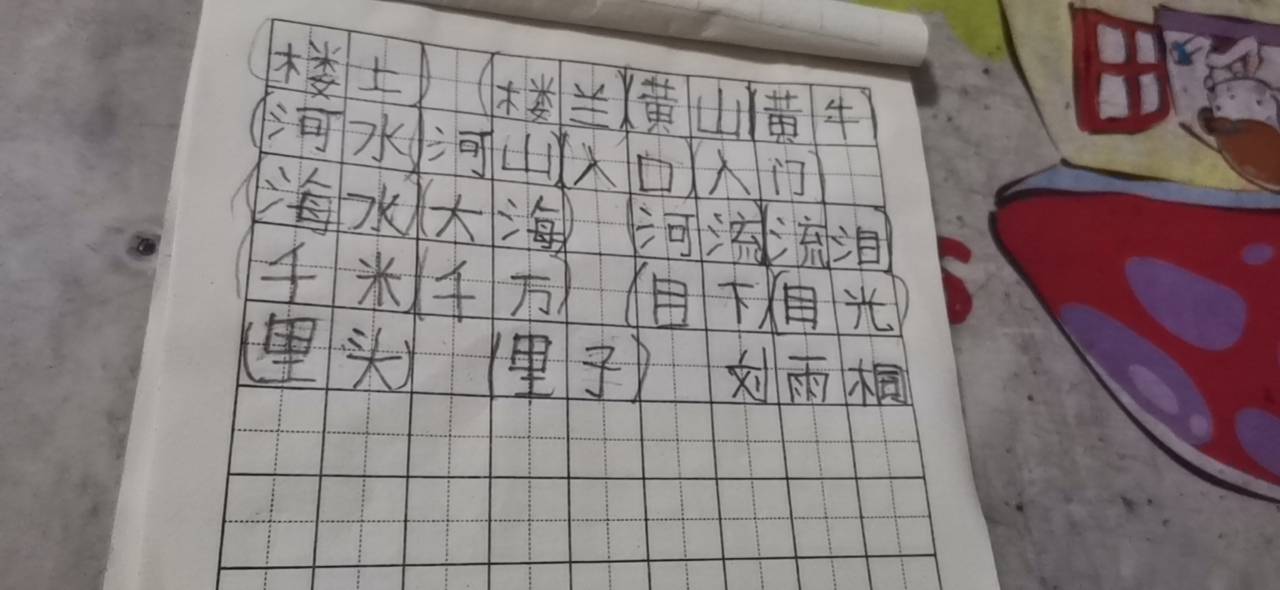 (楼上) (楼兰)(黄山)(黄牛)
(河水)(河山)(入口)(入门)
(海水)(大海) (河流)(流泪)
(千米)(千万) (目下)(目光)
(里头) (里子) 刘雨桐